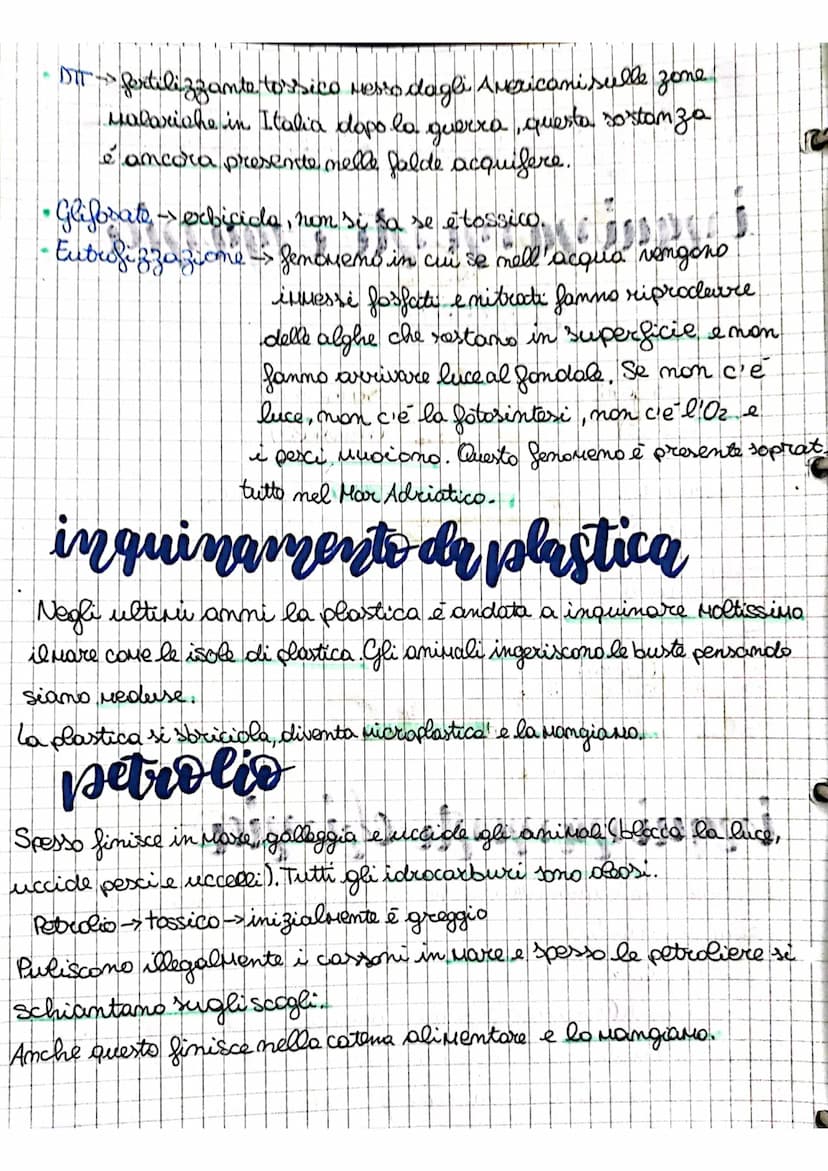 • DTT → fertilizzante tossico messo dagli Americani sulle zone
malariche in Italia dopo la guerra, questa sostanza
é ancora presente nelle falde acquifere.
• Glifosato → erbicida, non si sa se é tossico.
• Eutrofizzazione → fenomeno in cui se nell'acqua vengono
immessi fosfati e nitrati fanno riprodurre
delle alghe che restano in superficie e non
fanno arrivare luce al fondale. Se non c'é
luce, non c'é la fotosintesi, non c'é l'O2 e
i pesci muoiono. Questo fenomeno é presente soprat
tutto nel Mar Adriatico.
inquinamento da plastica
Negli ultimi anni la plastica é andata a inquinare moltissimo
il mare come le isole di plastica. Gli animali ingeriscono le buste pensando
siano meduse.
La plastica si sbriciola, diventa microplastica e la mangiamo.
petrolio
Spesso finisce in mare, galleggia e uccide gli animali (blocca la luce,
uccide pesci e uccelli). Tutti gli idrocarburi sono oleosi.
Petrolio → tossico → inizialmente é greggio
Puliscono illegalmente i cassoni in mare e spesso le petroliere si
schiantano sugli scogli.
Anche questo finisce nella catena alimentare e lo mangiamo.